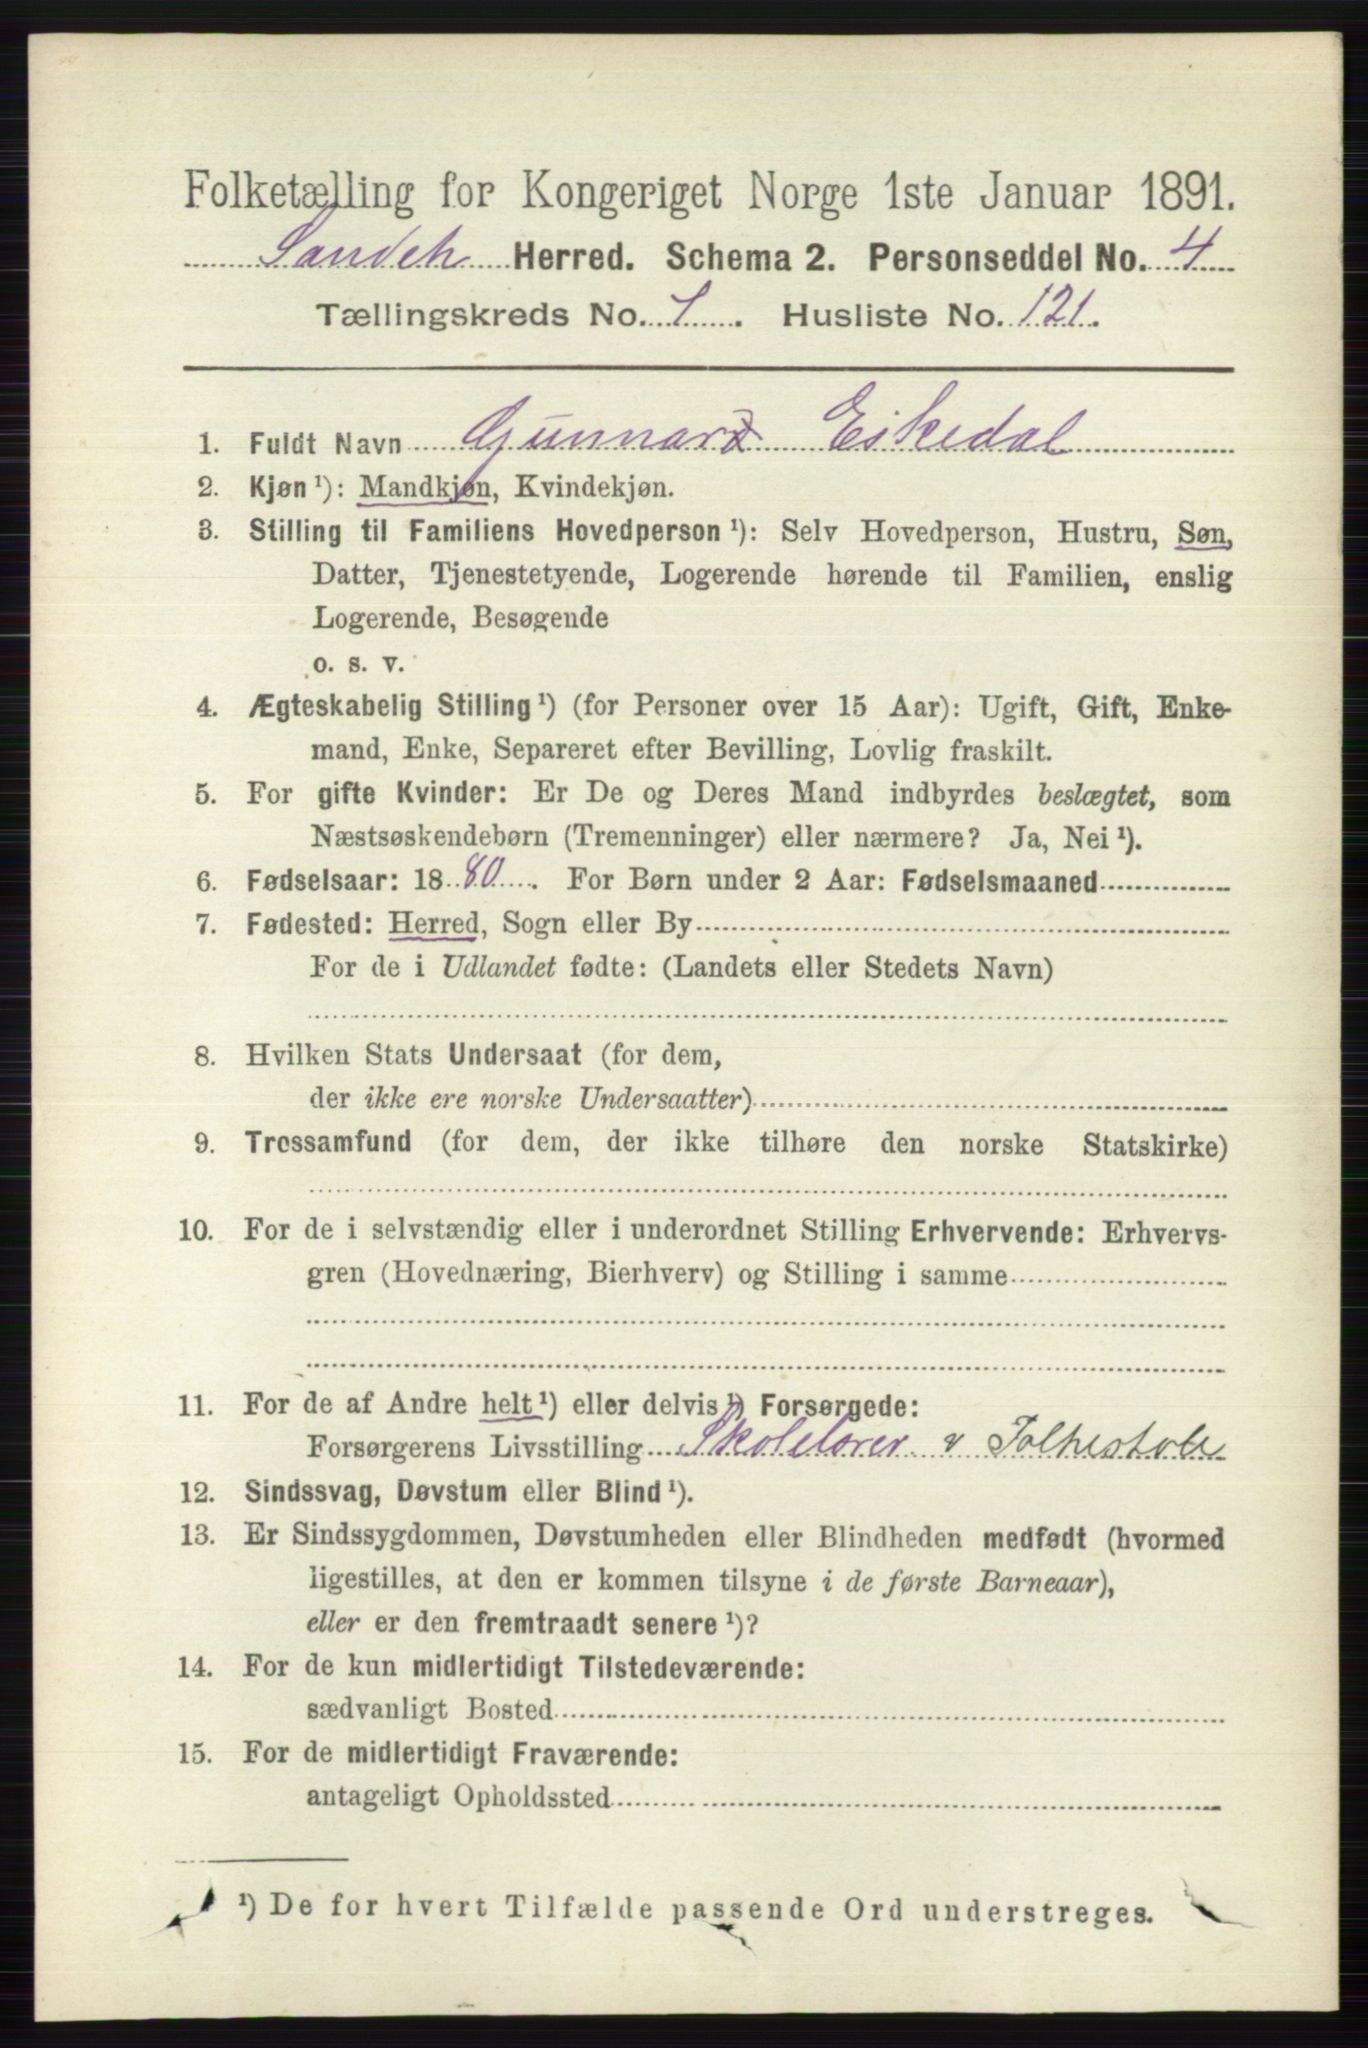 Folketælling for Kongeriget Norge 1ste Januar 1891.
Sandeh Herred. Schema 2. Personseddel No. 4
Tællingskreds No. 1. Husliste No. 121.
1. Fuldt Navn Gunnar Eikedal
2. Kjøn ¹): Mandkjøn, Kvindekjøn.
3. Stilling til Familiens Hovedperson ¹): Selv Hovedperson, Hustru, Søn,
Datter, Tjenestetyende, Logerende hørende til Familien, enslig
Logerende, Besøgende
o. s. v.
4. Ægteskabelig Stilling ¹) (for Personer over 15 Aar): Ugift, Gift, Enke-
mand, Enke, Separeret efter Bevilling, Lovlig fraskilt.
5. For gifte Kvinder: Er De og Deres Mand indbyrdes beslægtet, som
Næstsøskendebørn (Tremenninger) eller nærmere? Ja, Nei ¹).
6. Fødselsaar: 1880. For Børn under 2 Aar: Fødselsmaaned
7. Fødested: Herred, Sogn eller By
For de i Udlandet fødte: (Landets eller Stedets Navn)
8. Hvilken Stats Undersaat (for dem,
der ikke ere norske Undersaatter)
9. Trossamfund (for dem, der ikke tilhøre den norske Statskirke)
10. For de i selvstændig eller i underordnet Stilling Erhvervende: Erhvervs-
gren (Hovednæring, Bierhverv) og Stilling i samme
11. For de af Andre helt ¹) eller delvis ¹) Forsørgede:
Forsørgerens Livsstilling Skolelærer v Folkeskole
12. Sindssvag, Døvstum eller Blind ¹).
13. Er Sindssygdommen, Døvstumheden eller Blindheden medfødt (hvormed
ligestilles, at den er kommen tilsyne i de første Barneaar),
eller er den fremtraadt senere ¹)?
14. For de kun midlertidigt Tilstedeværende:
sædvanligt Bosted
15. For de midlertidigt Fraværende:
antageligt Opholdssted
¹) De for hvert Tilfælde passende Ord understreges.